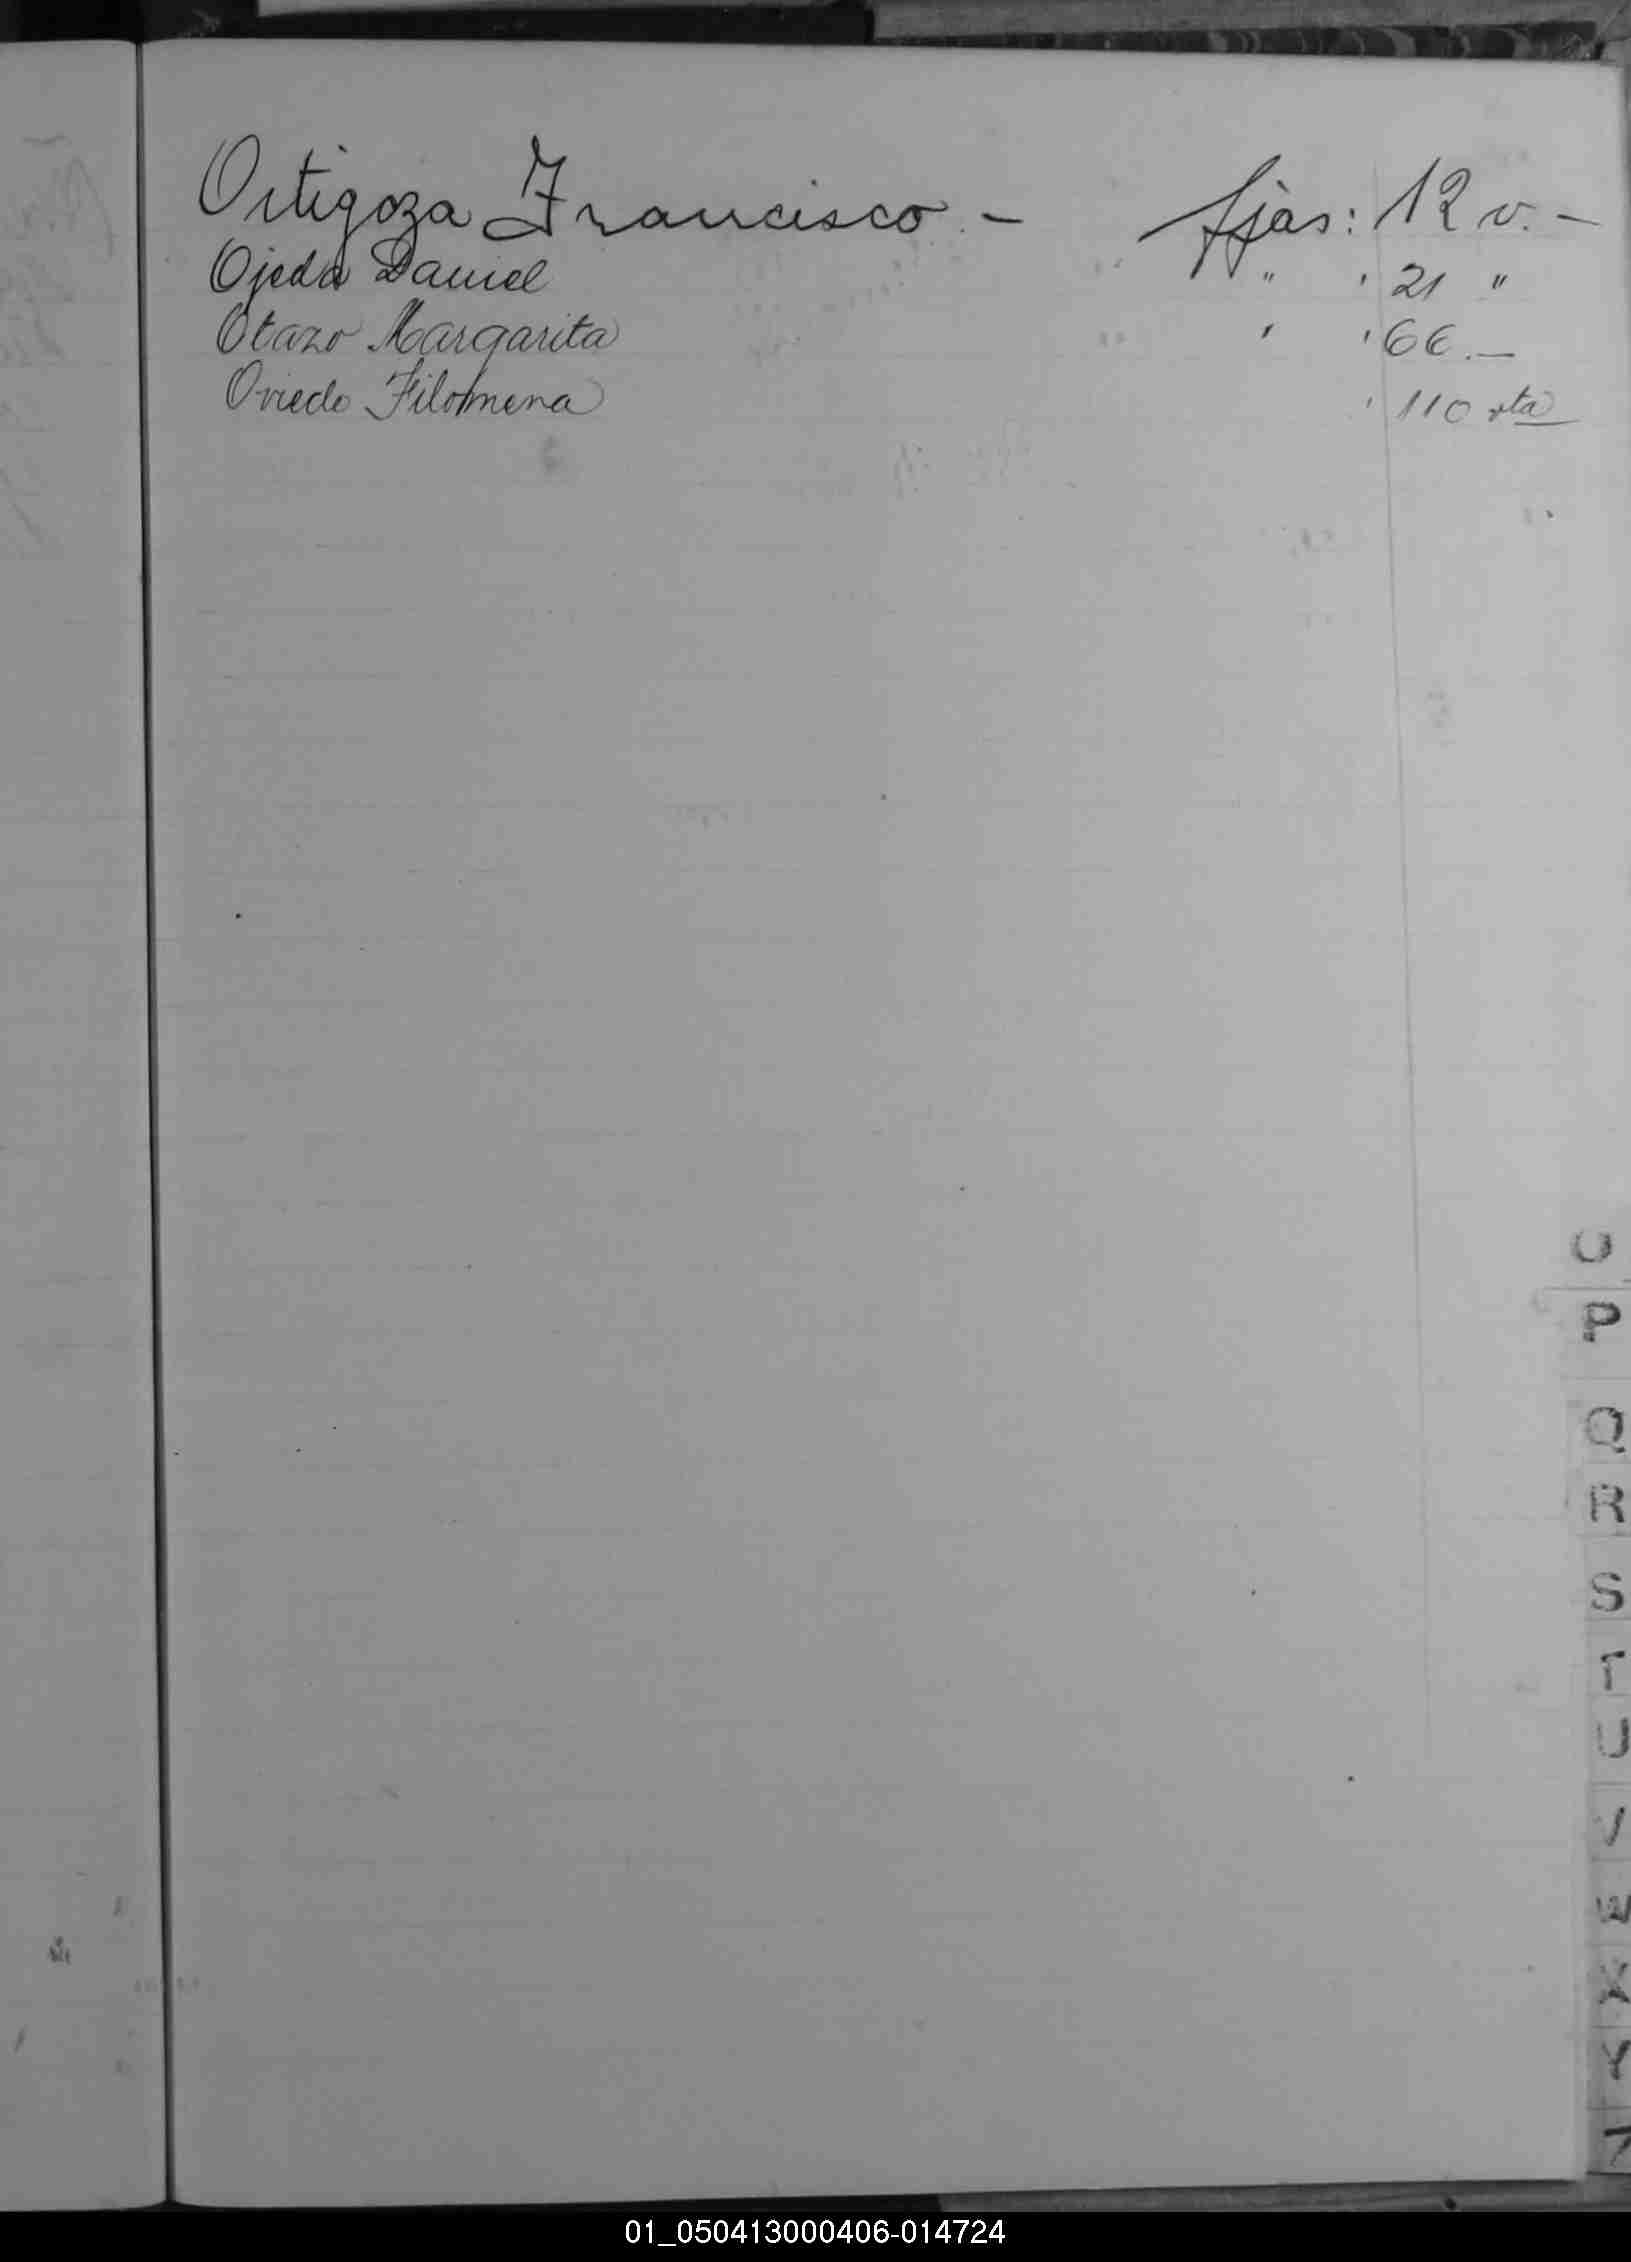 Ortigoza Francisco - fjas: 12 v. -
Ojeda Daniel " ' 21 "
Otazo Margarita ' ' 66. -
Oviedo Filomena ' 110 vta
O
P
Q
R
S
T
U
V
W
X
Y
Z
01_050413000406-014724